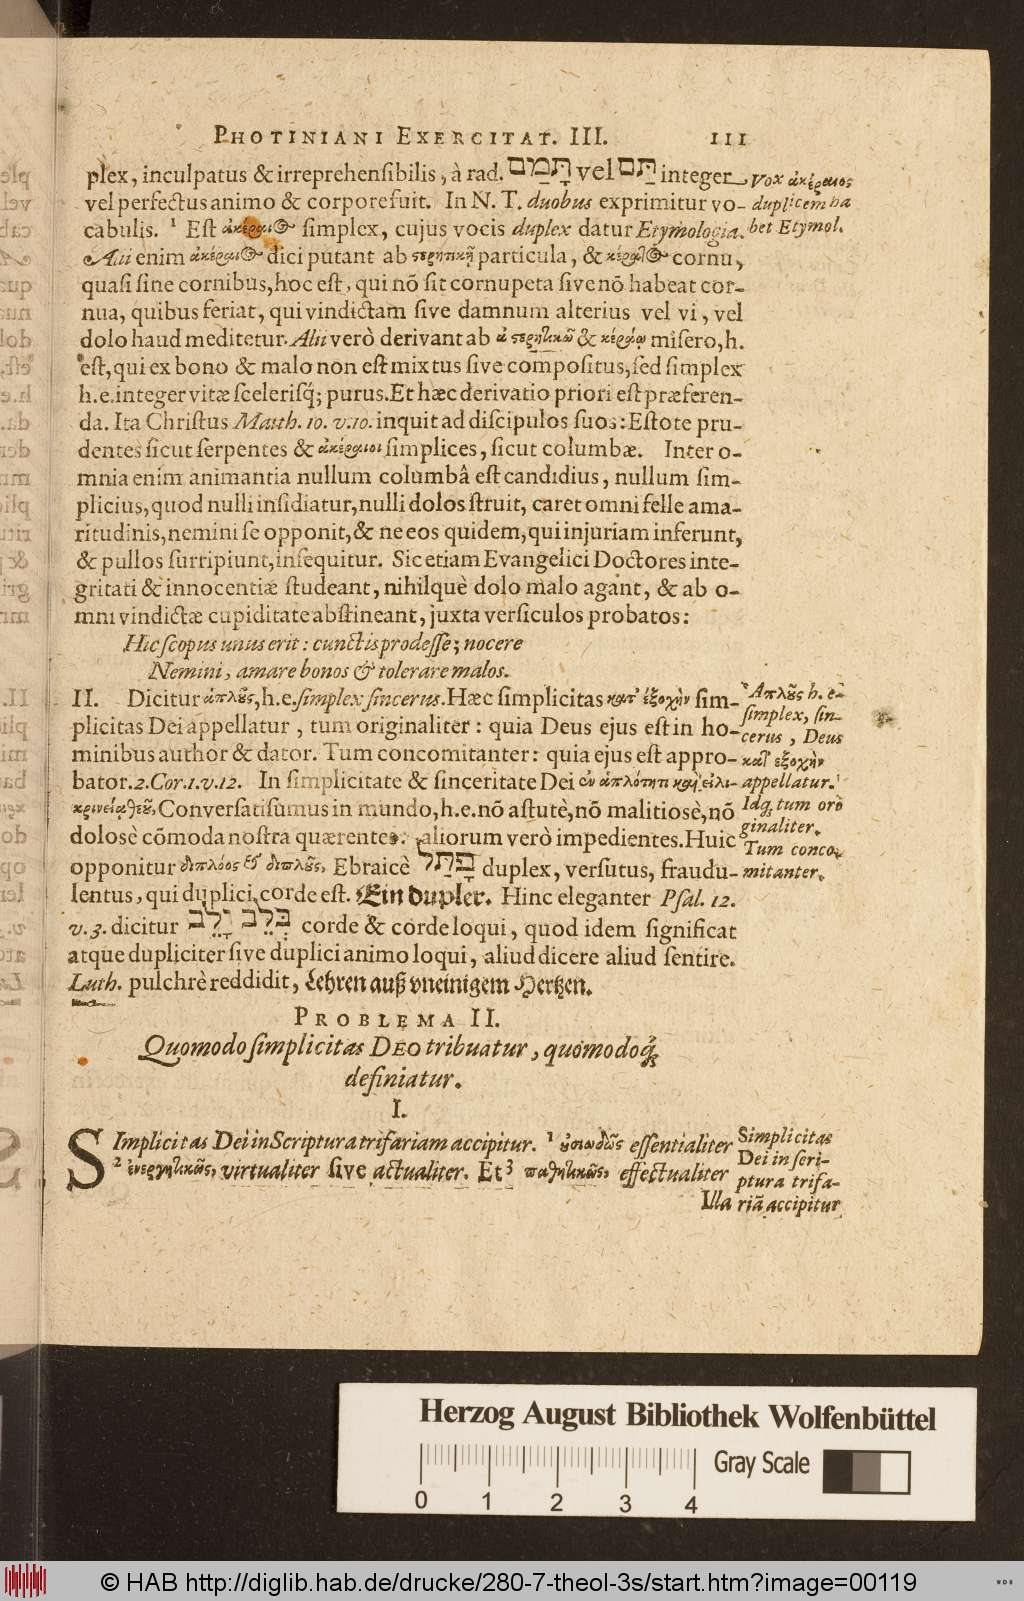 PHOTINIANI EXERCITAT. III. 111
plex, inculpatus & irreprehensibilis, à rad. תָּמַם vel תַּם integer
vel perfectus animo & corpore fuit. In N. T. duobus exprimitur vo-
cabulis. ¹ Est ἀκέραιος simplex, cujus vocis duplex datur Etymologia.
Alii enim ἀκέραιος dici putant ab στερητικῇ particula, & κέρας cornu,
quasi sine cornibus, hoc est, qui nō sit cornupeta sive nō habeat cor-
nua, quibus feriat, qui vindictam sive damnum alterius vel vi, vel
dolo haud meditetur. Alii verò derivant ab ἀ στερητικῶ & κεράω misero, h.
est, qui ex bono & malo non est mixtus sive compositus, sed simplex
h. e. integer vitæ scelerisq́; purus. Et hæc derivatio priori est præferen-
da. Ita Christus Matth. 10. v. 10. inquit ad discipulos suos: Estote pru-
dentes sicut serpentes & ἀκέραιοι simplices, sicut columbæ. Inter o-
mnia enim animantia nullum columbâ est candidius, nullum sim-
plicius, quod nulli insidiatur, nulli dolos struit, caret omni felle ama-
ritudinis, nemini se opponit, & ne eos quidem, qui injuriam inferunt,
& pullos surripiunt, insequitur. Sic etiam Evangelici Doctores inte-
gritati & innocentiæ studeant, nihilquè dolo malo agant, & ab o-
mni vindictæ cupiditate abstineant, juxta versiculos probatos:
Hic scopus unus erit: cunctis prodesse; nocere
Nemini, amare bonos & tolerare malos.
II. Dicitur ἁπλοῦς, h. e. simplex sincerus. Hæc simplicitas κατ' ἐξοχὴν sim-
plicitas Dei appellatur, tum originaliter: quia Deus ejus est in ho-
minibus author & dator. Tum concomitanter: quia ejus est appro-
bator. 2. Cor. 1. v. 12. In simplicitate & sinceritate Dei ἐν ἁπλότητι καὶ εἰλι-
κρινείᾳ θεοῦ, Conversati sumus in mundo, h. e. nō astutè, nō malitiosè, nō
dolosè cōmoda nostra quærentes: aliorum verò impedientes. Huic
opponitur διπλόος & διπλοῦς, Ebraicè פָּתַל duplex, versutus, fraudu-
lentus, qui duplici corde est. Ein dupler. Hinc eleganter Psal. 12.
v. 3. dicitur בְּלֵב וָלֵב corde & corde loqui, quod idem significat
atque dupliciter sive duplici animo loqui, aliud dicere aliud sentire.
Luth. pulchrè reddidit, Lehren auß vneinigem Hertzen.
PROBLEMA II.
Quomodo simplicitas DEO tribuatur, quomodoq́;
definiatur.
I.
SImplicitas Dei in Scriptura trifariam accipitur. ¹ οὐσιωδῶς essentialiter
² ἐνεργητικῶς, virtualiter sive actualiter. Et ³ παθητικῶς, effectualiter
Illa
Vox ἀκέραιος
duplicem ha
bet Etymol.
Ἁπλοῦς h. e.
simplex, sin-
cerus, Deus
κατ' ἐξοχὴν
appellatur.
Idq́; tum ori
ginaliter.
Tum conco-
mitanter.
Simplicitas
Dei in scri-
ptura trifa-
riā accipitur
Herzog August Bibliothek Wolfenbüttel
Gray Scale
0 1 2 3 4
© HAB http://diglib.hab.de/drucke/280-7-theol-3s/start.htm?image=00119